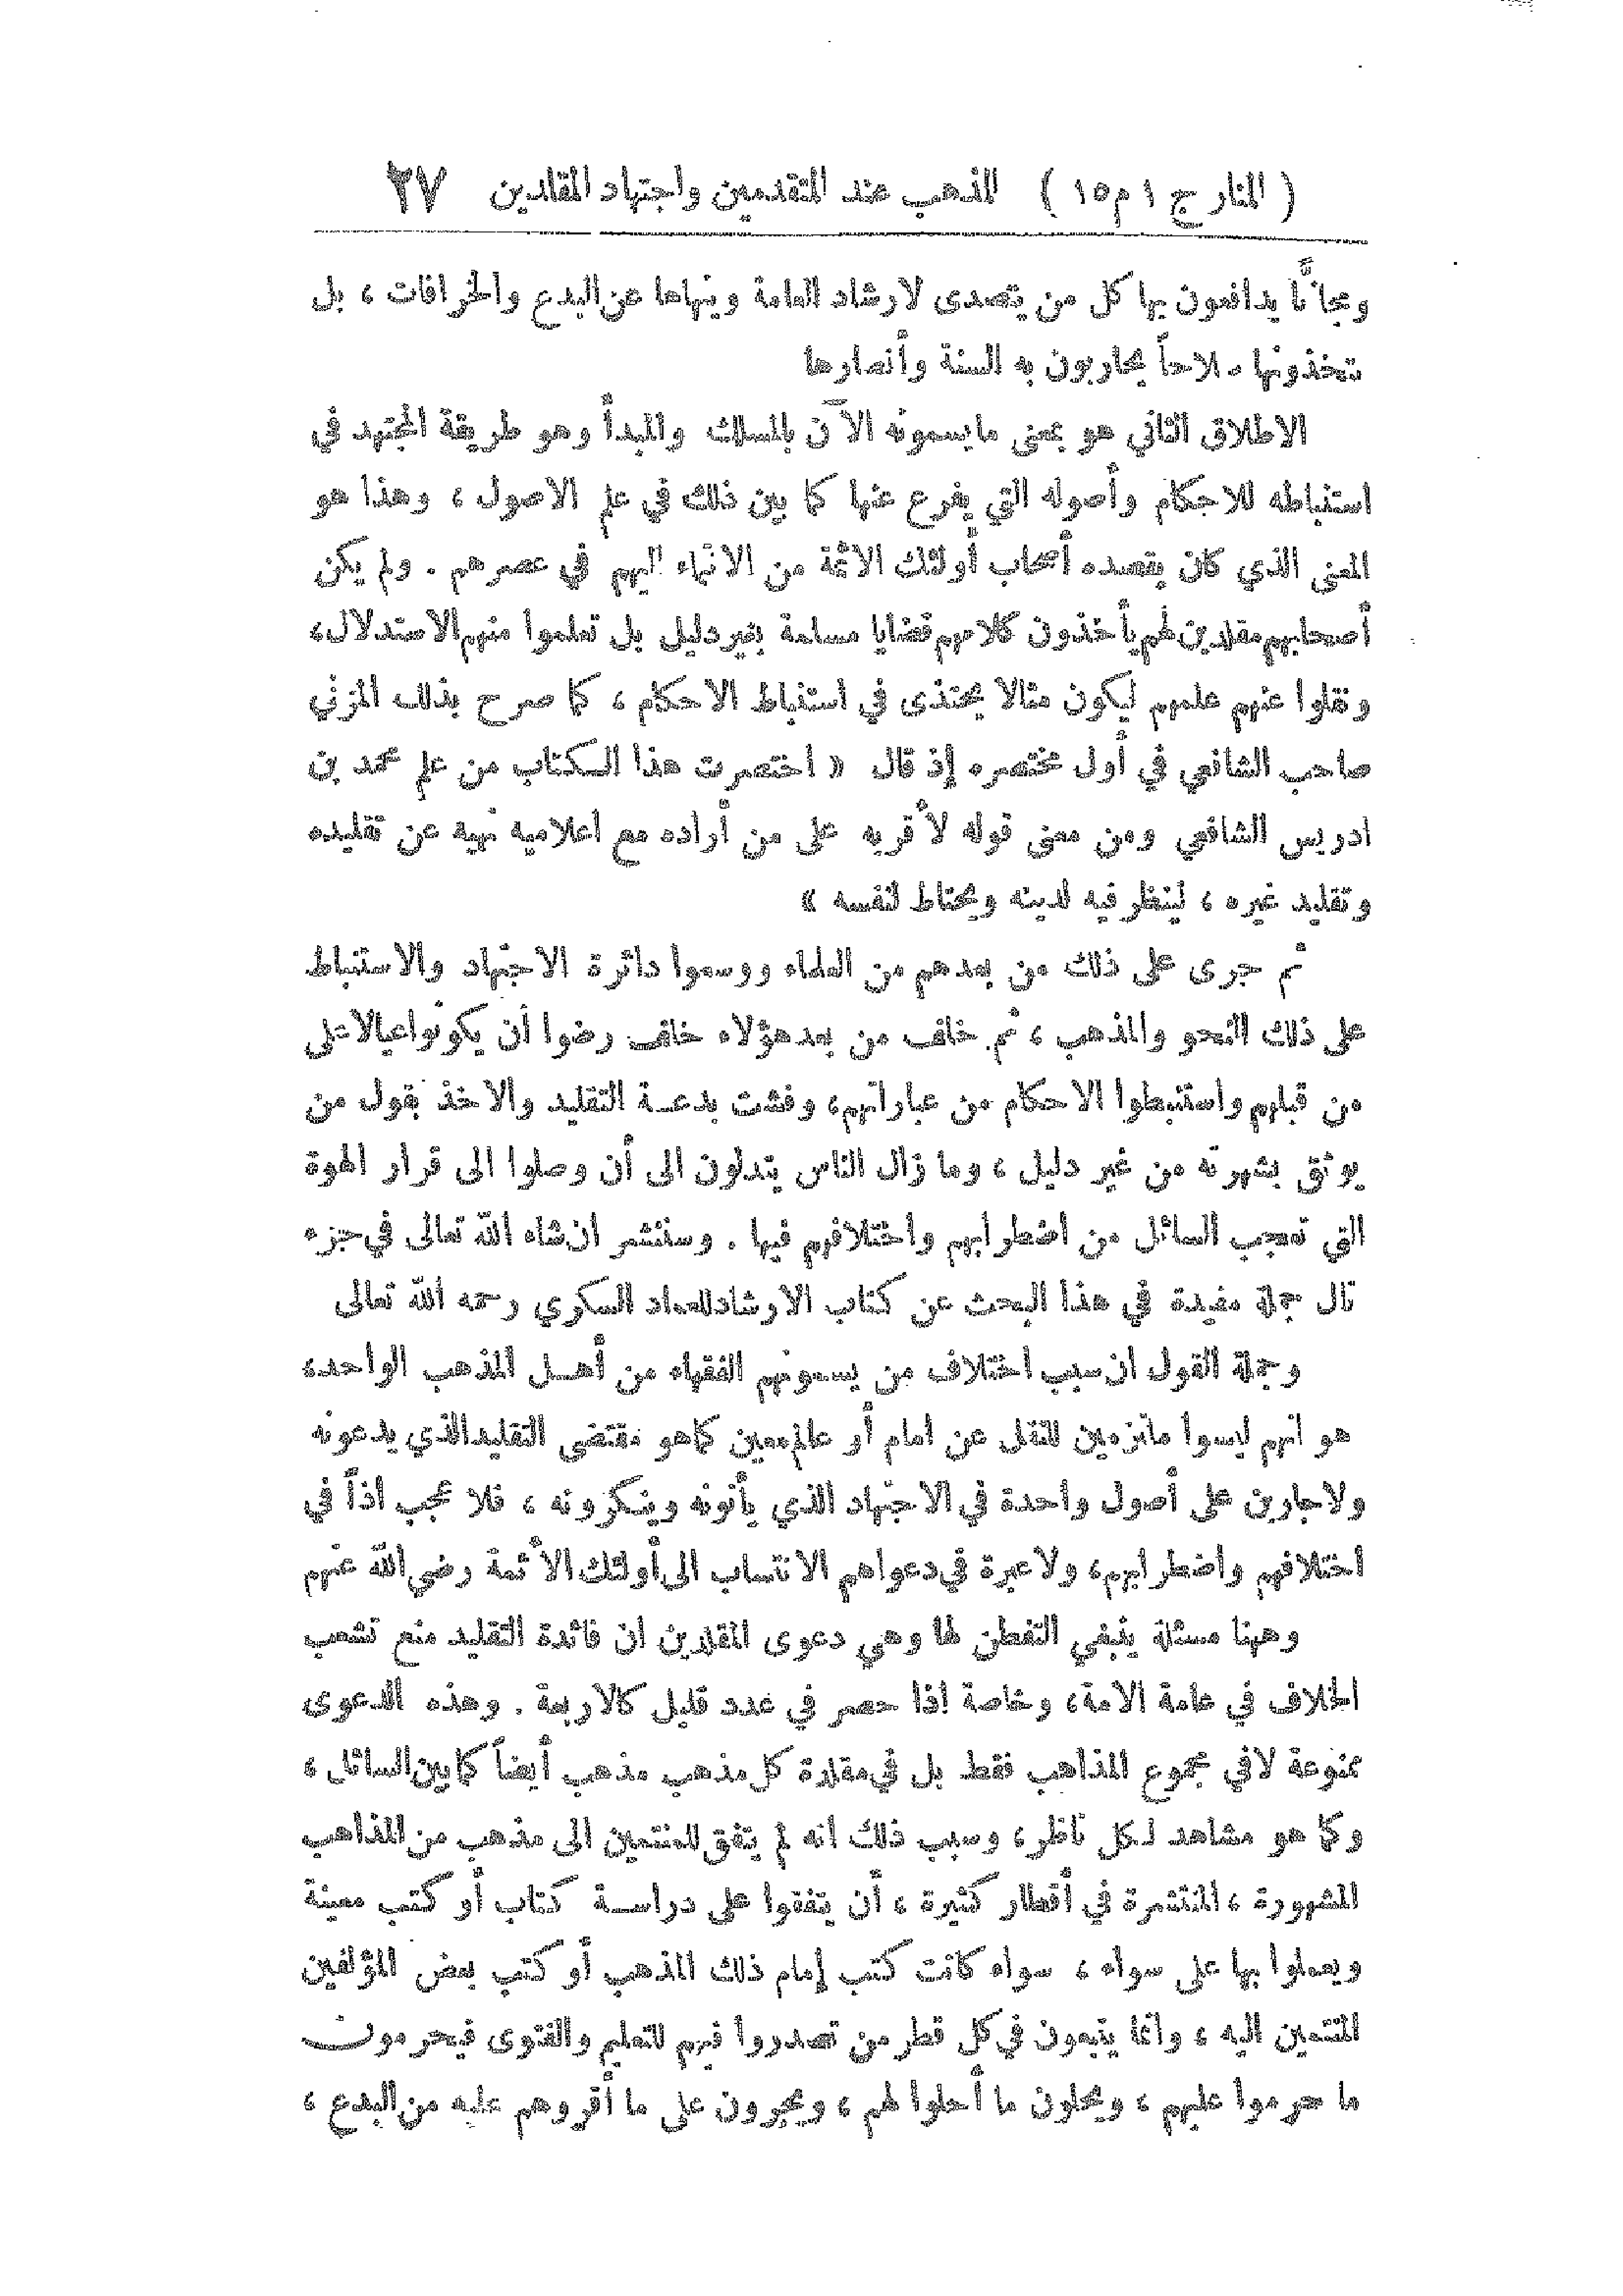 ( المنار ج ١ م ١٥ ) المذهب عند المتقدمين واجتهاد المقلدين ٢٧
ومجانًّا يدافعون بها كل من يتصدى لارشاد العامة وينهاها عن البدع والخرافات ، بل
يتخذونها سلاحاً يحاربون به السنة وأنصارها
الاطلاق الثاني هو بمعنى مايسمونه الآن بالمسلك والمبدأ وهو طريقة المجتهد في
استنباطه للاحكام وأصوله التي يفرع عنها كما بين ذلك في علم الاصول ، وهذا هو
المعنى الذي كان يقصده أصحاب أولئك الائمة من الانتماء اليهم في عصرهم . ولم يكن
أصحابهم مقلدين لهم يأخذون كلامهم قضايا مسلمة بغير دليل بل تعلموا منهم الاستدلال،
ونقلوا عنهم علمهم ليكون مثالا يحتذى في استنباط الاحكام ، كما صرح بذلك المزني
صاحب الشافعي في أول مختصره إذ قال « اختصرت هذا الكتاب من علم محمد بن
ادريس الشافعي ومن معنى قوله لأقربه على من أراده مع اعلاميه نهيه عن تقليده
وتقليد غيره ، لينظر فيه لدينه ويحتاط لنفسه »
ثم جرى على ذلك من بعدهم من العلماء ووسعوا دائرة الاجتهاد والاستنباط
على ذلك النحو والمذهب ، ثم خلف من بعد هؤلاء خلف رضوا أن يكونوا عيالا على
من قبلهم واستنبطوا الاحكام من عباراتهم، وفشت بدعة التقليد والاخذ بقول من
يوثق بشهرته من غير دليل ، وما زال الناس يتدلون الى أن وصلوا الى قرار الهوة
التي تعجب السائل من اضطرابهم واختلافهم فيها . وسننشر ان شاء الله تعالى في جزء
تال جملة مفيدة في هذا البحث عن كتاب الارشاد للعماد السكري رحمه الله تعالى
وجملة القول ان سبب اختلاف من يسمونهم الفقهاء من أهل المذهب الواحد،
هو انهم ليسوا ملتزمين للنقل عن امام أو عالم معين كما هو مقتضى التقليد الذي يدعونه
ولا جارين على أصول واحدة في الاجتهاد الذي يأتونه وينكرونه ، فلا عجب اذاً في
اختلافهم واضطرابهم، ولا عبرة في دعواهم الانتساب الى أولئك الأئمة رضي الله عنهم
وههنا مسئلة ينبغي التفطن لها وهي دعوى المقلدين ان فائدة التقليد منع تشعب
الخلاف في عامة الامة، وخاصة اذا حصر في عدد قليل كالاربعة . وهذه الدعوى
ممنوعة لا في مجموع المذاهب فقط بل في مقلدة كل مذهب مذهب أيضاً كما بين السائل ،
وكما هو مشاهد لكل ناظر، وسبب ذلك انه لم يتفق للمنتمين الى مذهب من المذاهب
المشهورة ، المنتشرة في أقطار كثيرة ، أن يتفقوا على دراسة كتاب أو كتب معينة
ويعملوا بها على سواء ، سواء كانت كتب إمام ذلك المذهب أو كتب بعض المؤلفين
المنتمين اليه ، وانما يتبعون في كل قطر من تصدروا فيهم للتعليم والفتوى فيحرمون
ما حرموا عليهم ، ويحلون ما أحلوا لهم ، ويجرون على ما أقروهم عليه من البدع ،